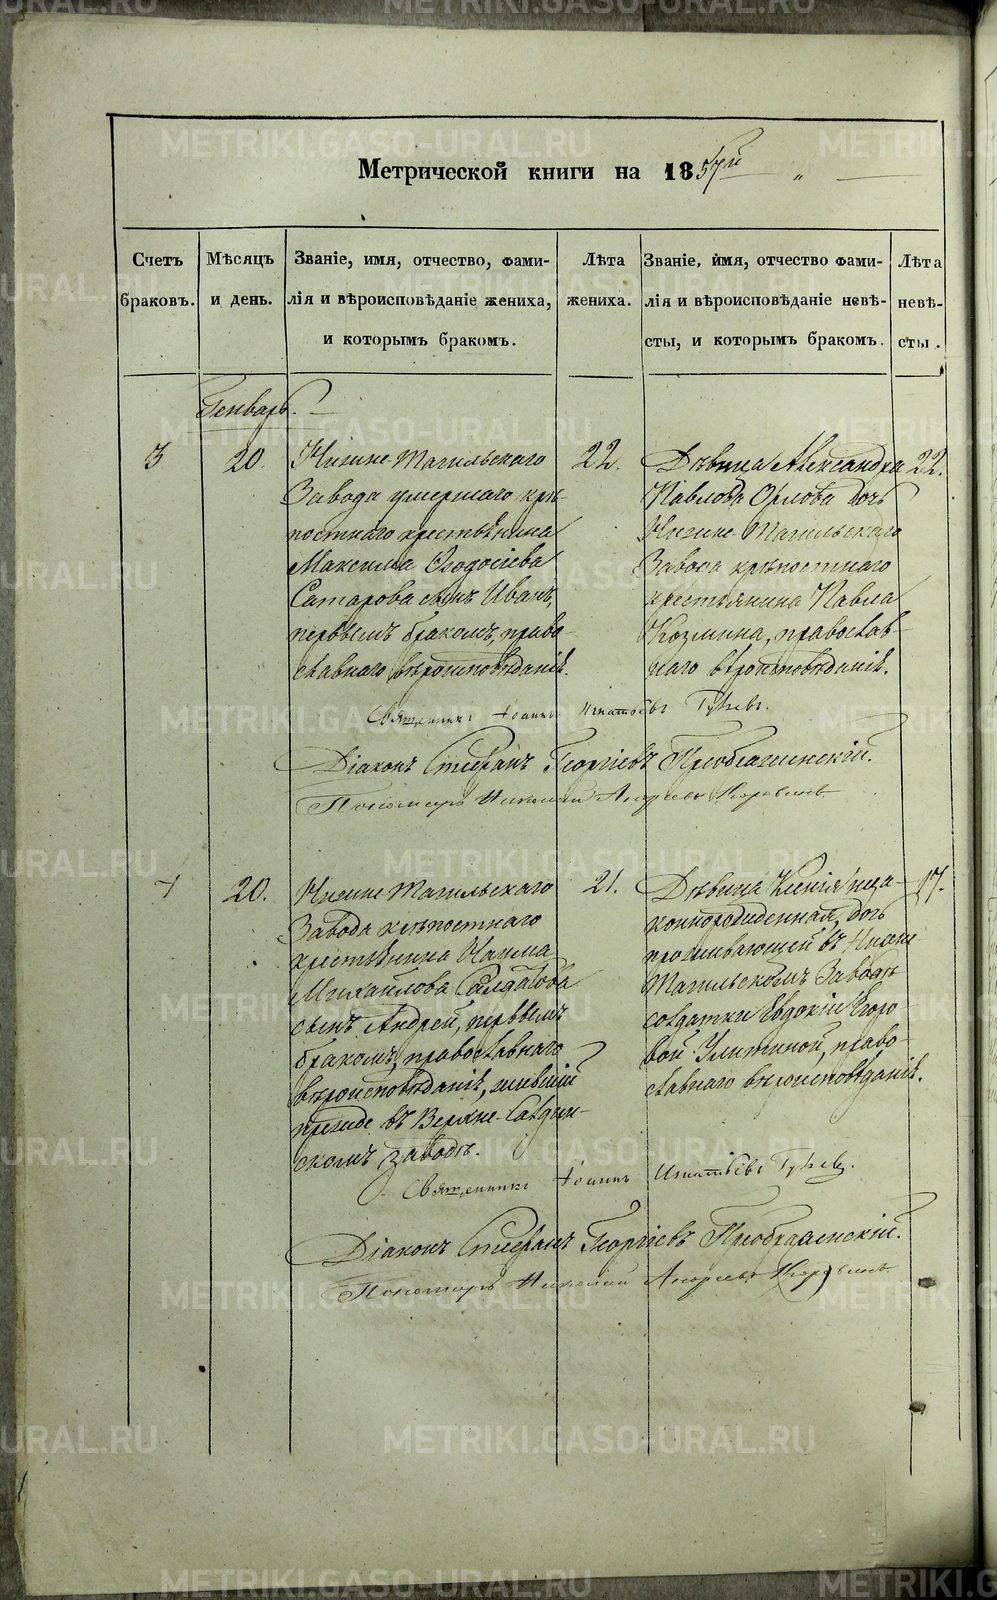 METRIKI.GASO-URAL.RU
Метрической книги на 1857й
Счетъ браковъ.
Мѣсяцъ и день.
Званіе, имя, отчество, фами-
лія и вѣроисповѣданіе жениха,
и которымъ бракомъ.
Лѣта жениха.
Званіе, имя, отчество фами-
лія и вѣроисповѣданіе невѣ-
сты, и которымъ бракомъ.
Лѣта невѣ-
сты.
Генварь.
3
20.
Нижне-Тагильскаго
Завода умершаго крѣ-
постнаго крестьянина
Максима Ѳеодосіева
Сатарова сынъ Иванъ,
первымъ бракомъ, право-
славнаго вѣроисповѣданія.
22.
Дѣвица Александра
Павлова Орлова дочь
Нижне-Тагильскаго
Завода крѣпостнаго
крестьянина Павла
Козмина, православ-
наго вѣроисповѣданія.
22.
Священникъ Іоаннъ Игнатьевъ
Діаконъ Стефанъ Георгіевъ Преображенскій.
Пономарь Николай Андреевъ Коровинъ
4
20.
Нижне Тагильскаго
Завода крѣпостнаго
крестьянина Наума
Михайлова Салдатова
сынъ Андрей, первымъ
бракомъ, православнаго
вѣроисповѣданія, жившій
прежде въ Верхне-Салдин-
скомъ заводѣ.
21.
Дѣвица Ксенія неза-
коннорожденная, дочь
проживающей въ Нижне
Тагильскомъ Заводѣ
солдатки Евдокіи Егоро-
вой Улитиной, право-
славнаго вѣроисповѣданія.
17.
Священникъ Іоаннъ Игнатьевъ
Діаконъ Стефанъ Георгіевъ Преображенскій.
Пономарь Николай Андреевъ Коровинъ